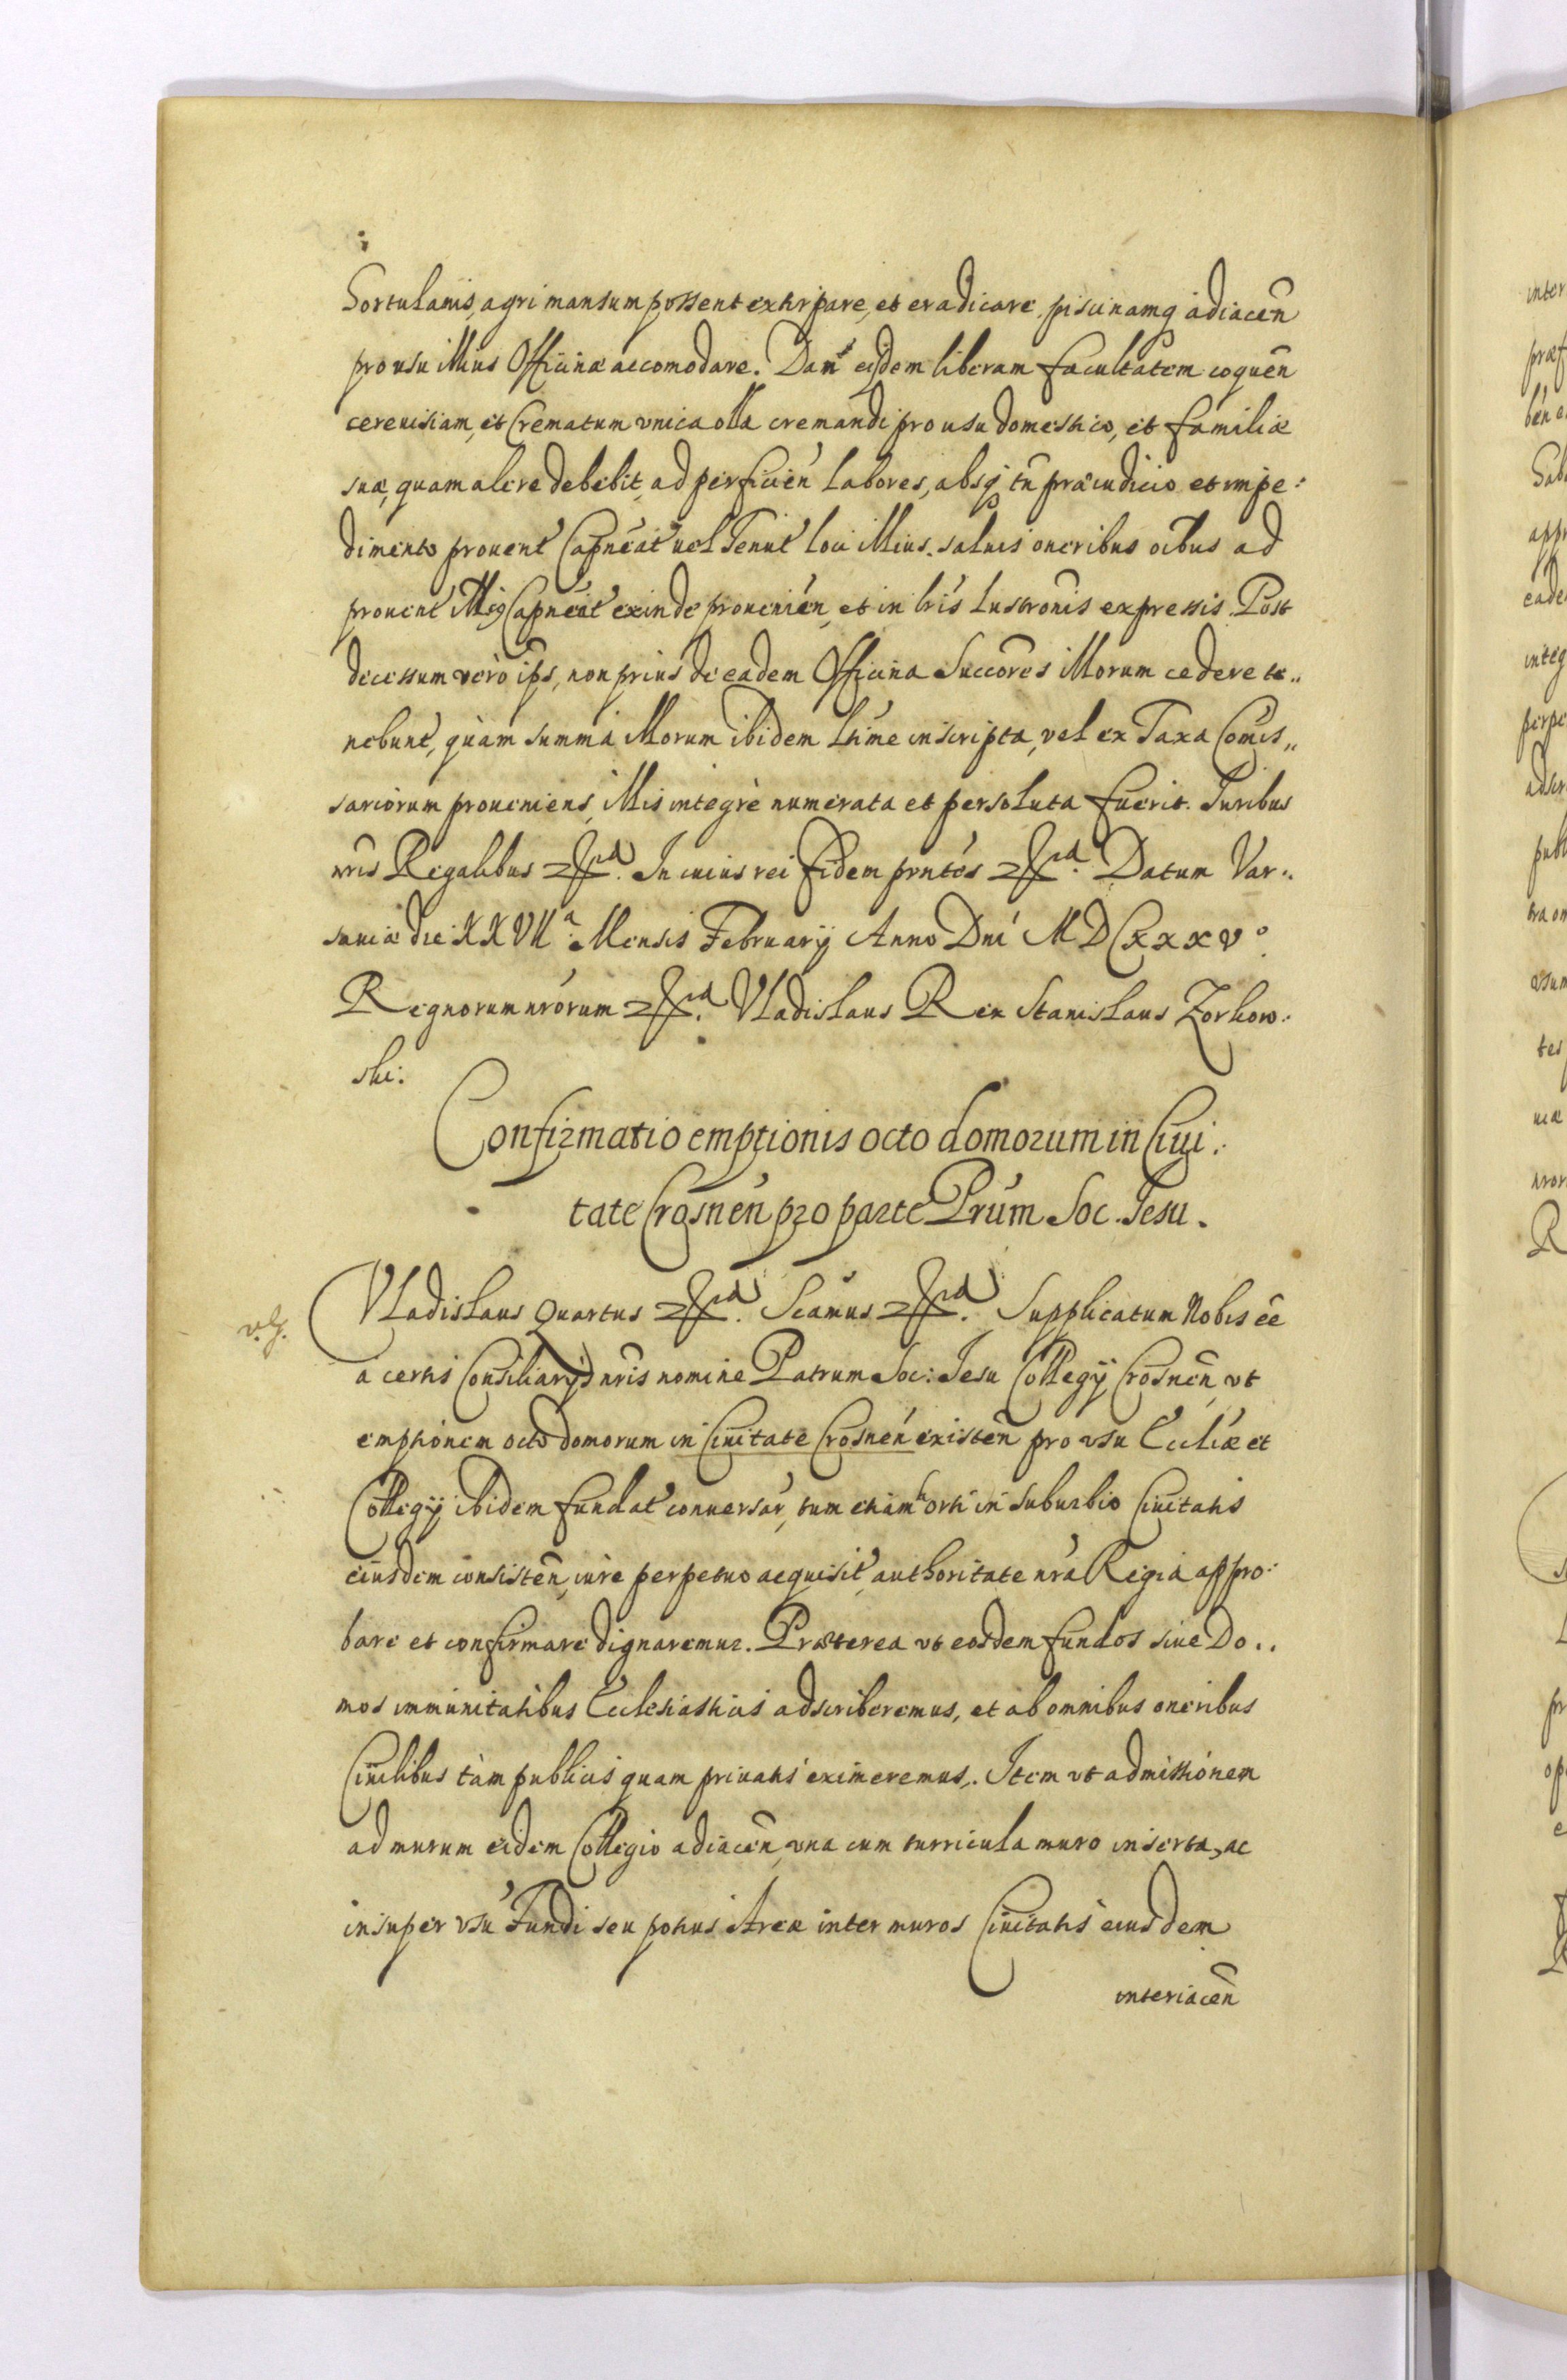 Hortulanis, agri mansum possent extirpare, et eradicare, piscinamq adiacen̄
pro usu illius Officinæ accomodare. Dan̄ eisdem liberam facultatem coquen̄
cereuisiam, et Crematum vnica olla cremandi pro usu domestico, et familiæ
suæ, quam alere debebit, ad perficien̄ labores, absq tn̄ præiudicio et impe:
dimento prouent Capneat vel Tenut loci illius. saluis oneribus oībus ad
prouent Capneat exinde prouenien̄, et in lrīs Lustronīs expressis. Post
decessum verò ips, non prius de eadem Officina Succores illorum cedere te„
nebunt, quàm summa illorum ibidem ltīme inscripta, vel ex Taxa Comis„
sariorum proueniens, illis integrè numerata et persoluta fuerit. Iuribus
nrīs Regalibus etc. In cuius rei fidem pn̄tes etc. Datum Var„
sauiæ die XXVII a. Mensis February Anno Dnī MDCXXXV o.
Regnorum nrōrum etc. Vladislaus Rex Stanislaus
ski.
Confirmatio emptionis octo domorum in Ciui:
tate Crosnen̄ pro parte Prūm Soc. Iesu.
Vladislaus Quartus etc. Scāmus etc. Supplicatum Nobis eē
a certis Consiliarys nrīs nomine Patrum Soc: Iesu Collegy Crosnen̄, vt
emptionem octo domorum in Ciuitate Crosnen̄ existen̄ pro vsu Eccliæ et
Collegy ibidem fundat conuersar, tum etiam horti in suburbio Ciuitatis
eiusdem consisten̄, iure perpetuo acquisit, authoritate nrā Regia appro:
bare et confirmare dignaremur. Præterea vt eosdem fundos siue Do„
mos immunitatibus Ecclesiasticis adscriberemus, et ab omnibus oneribus
Ciuilibus tàm publicis quam priuatis eximeremus. Item vt admissionem
ad murum eidem Collegio adiacen̄, vna cum turricula muro inserta, ac
insuper vsū Fundi seu potius Areæ inter muros Ciuitatis eiusdem
interiacen̄